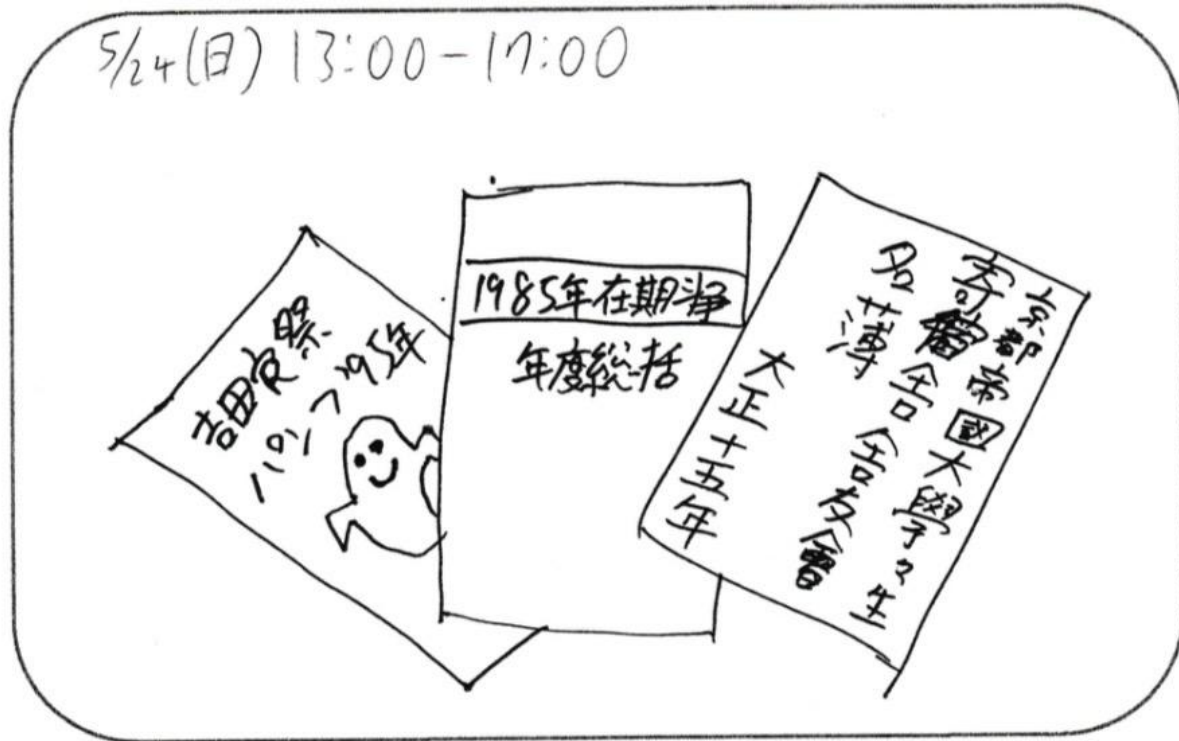 5/24(日) 13:00-17:00
吉田寮祭
パンフ '95年
1985年在期斗争
年度総括
京都帝國大學々生
寄宿舎舎友會
名簿
大正十五年